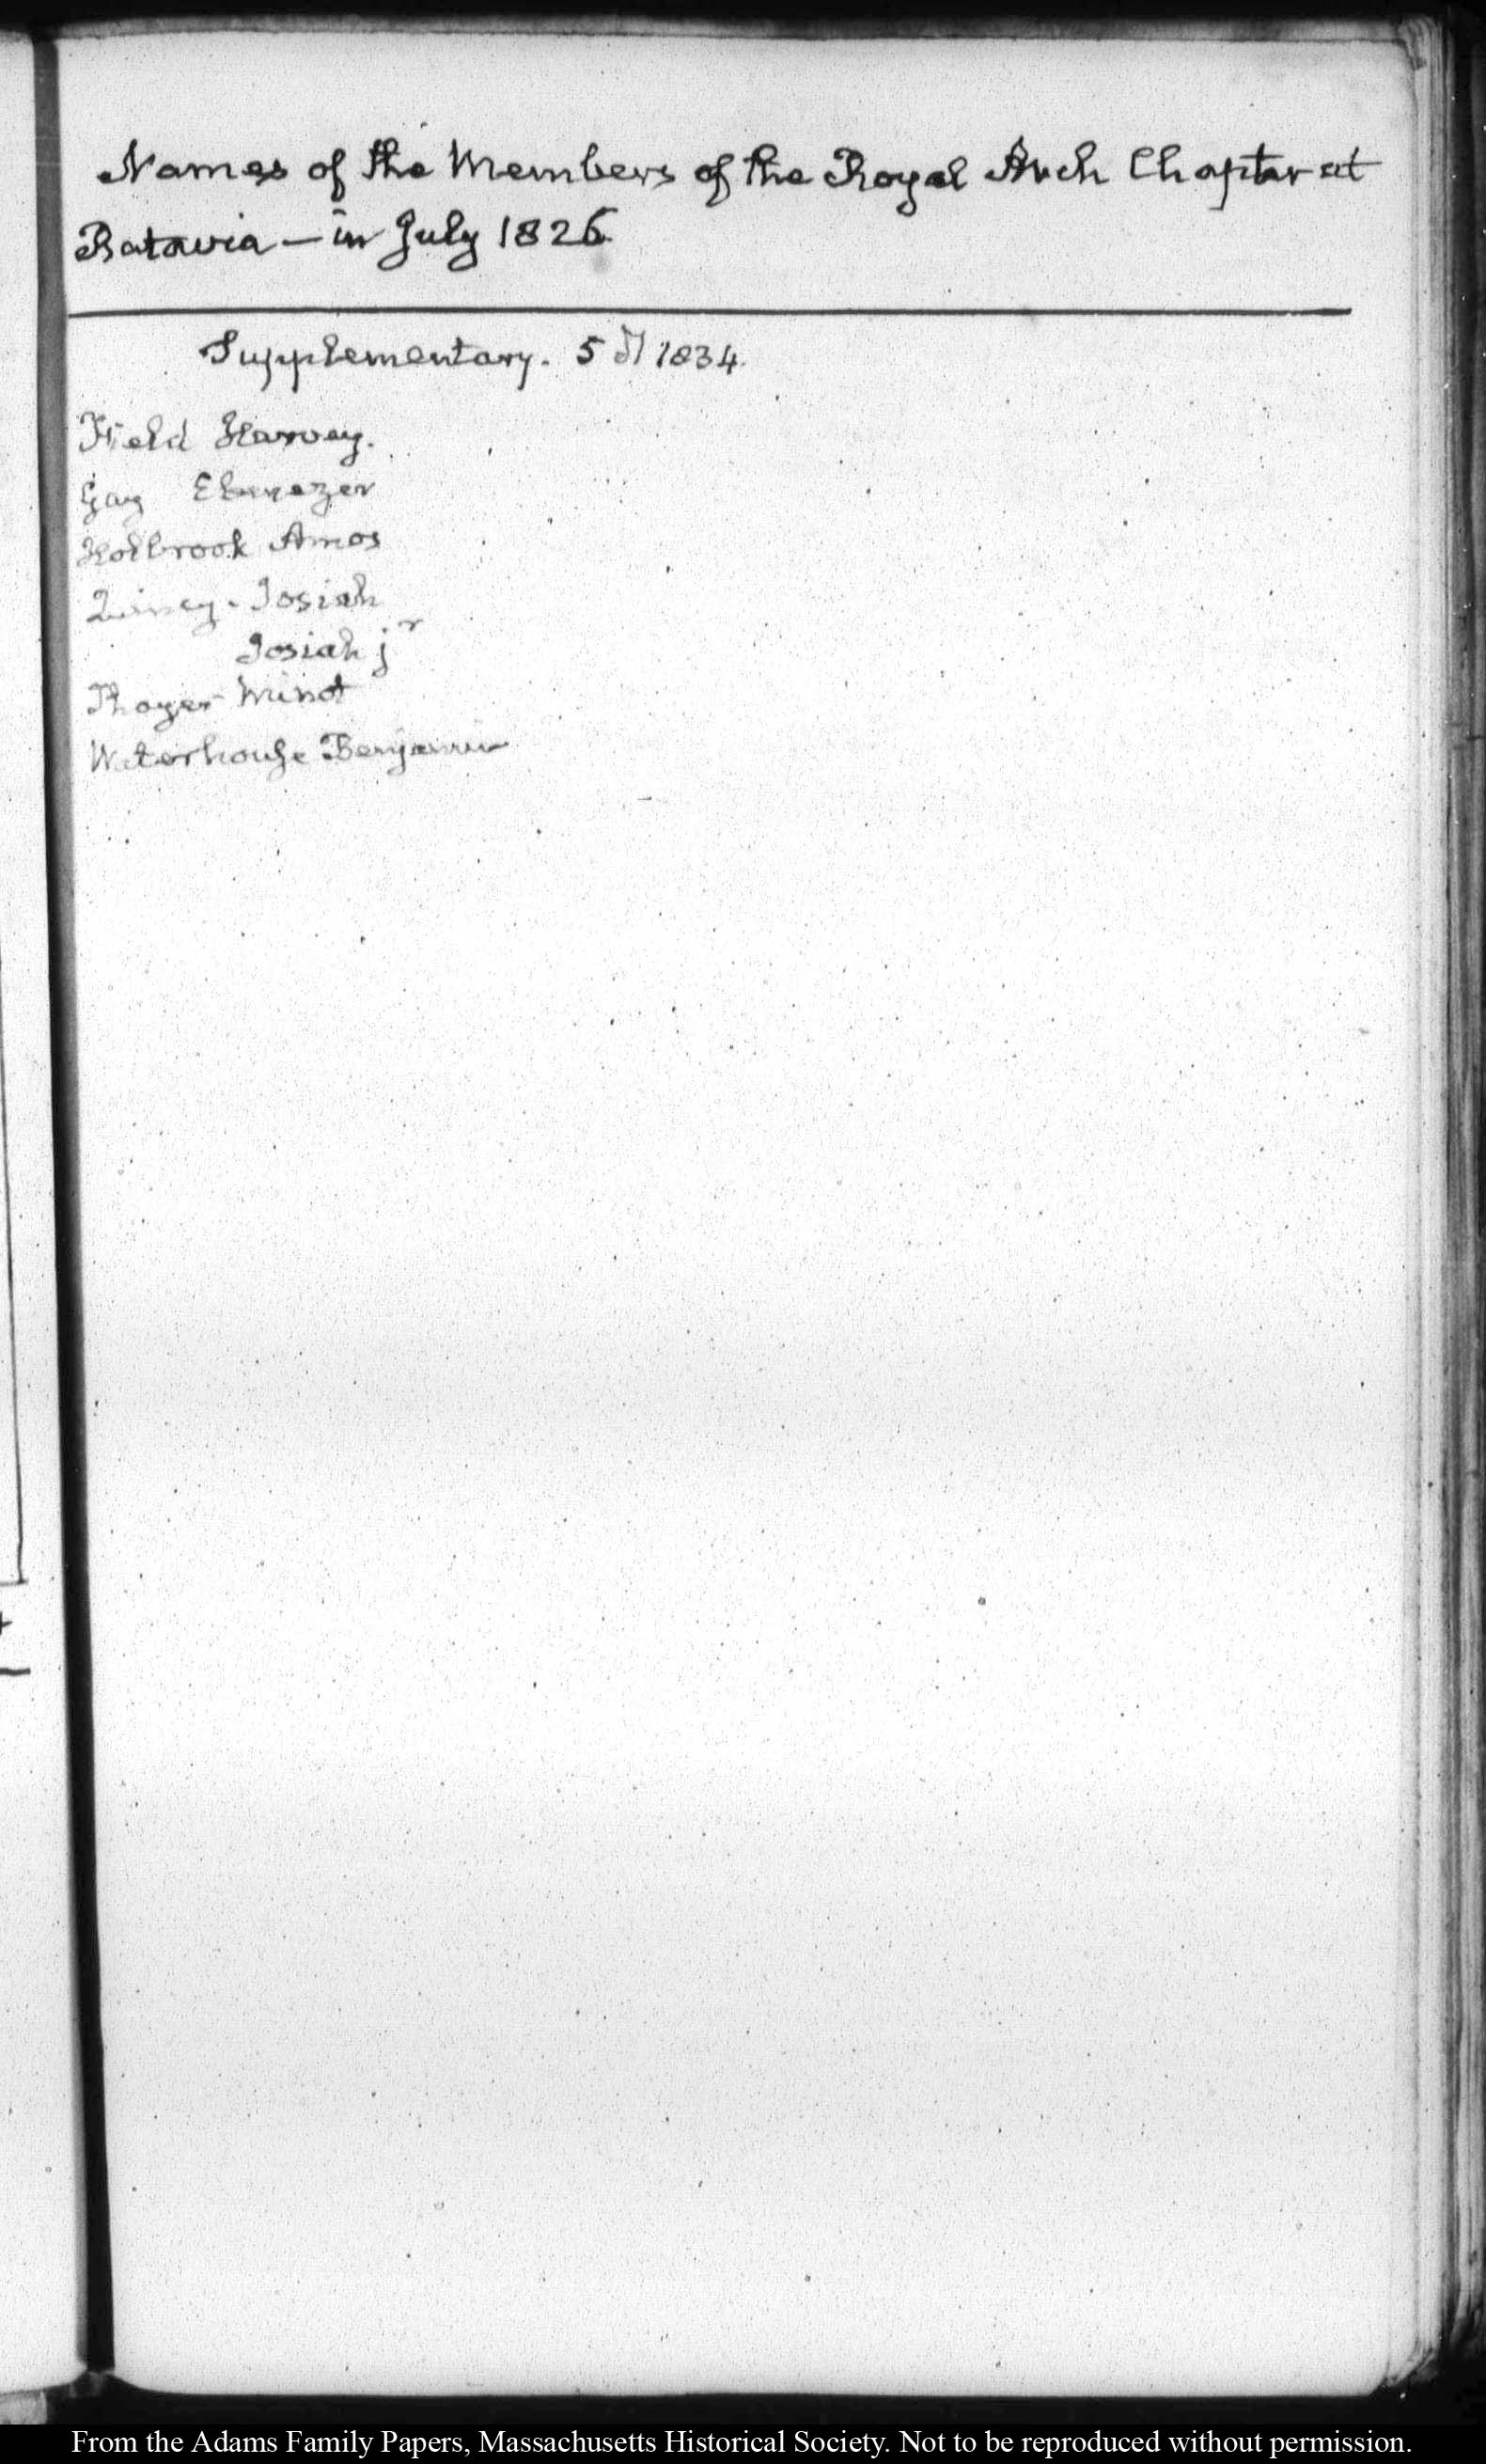 Names of the Members of the Royal Arch Chapter at
Batavia — in July 1826
Supplementary. 5 1834.
Field Harvey.
Gay Ebenezer
Holbrook Amos
Quincy. Josiah
Josiah jr
Thayer Minot
Waterhouse Benjamin
From the Adams Family Papers, Massachusetts Historical Society. Not to be reproduced without permission.